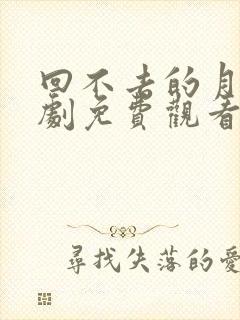 回不去的月
劇免費觀看
尋找失落的愛